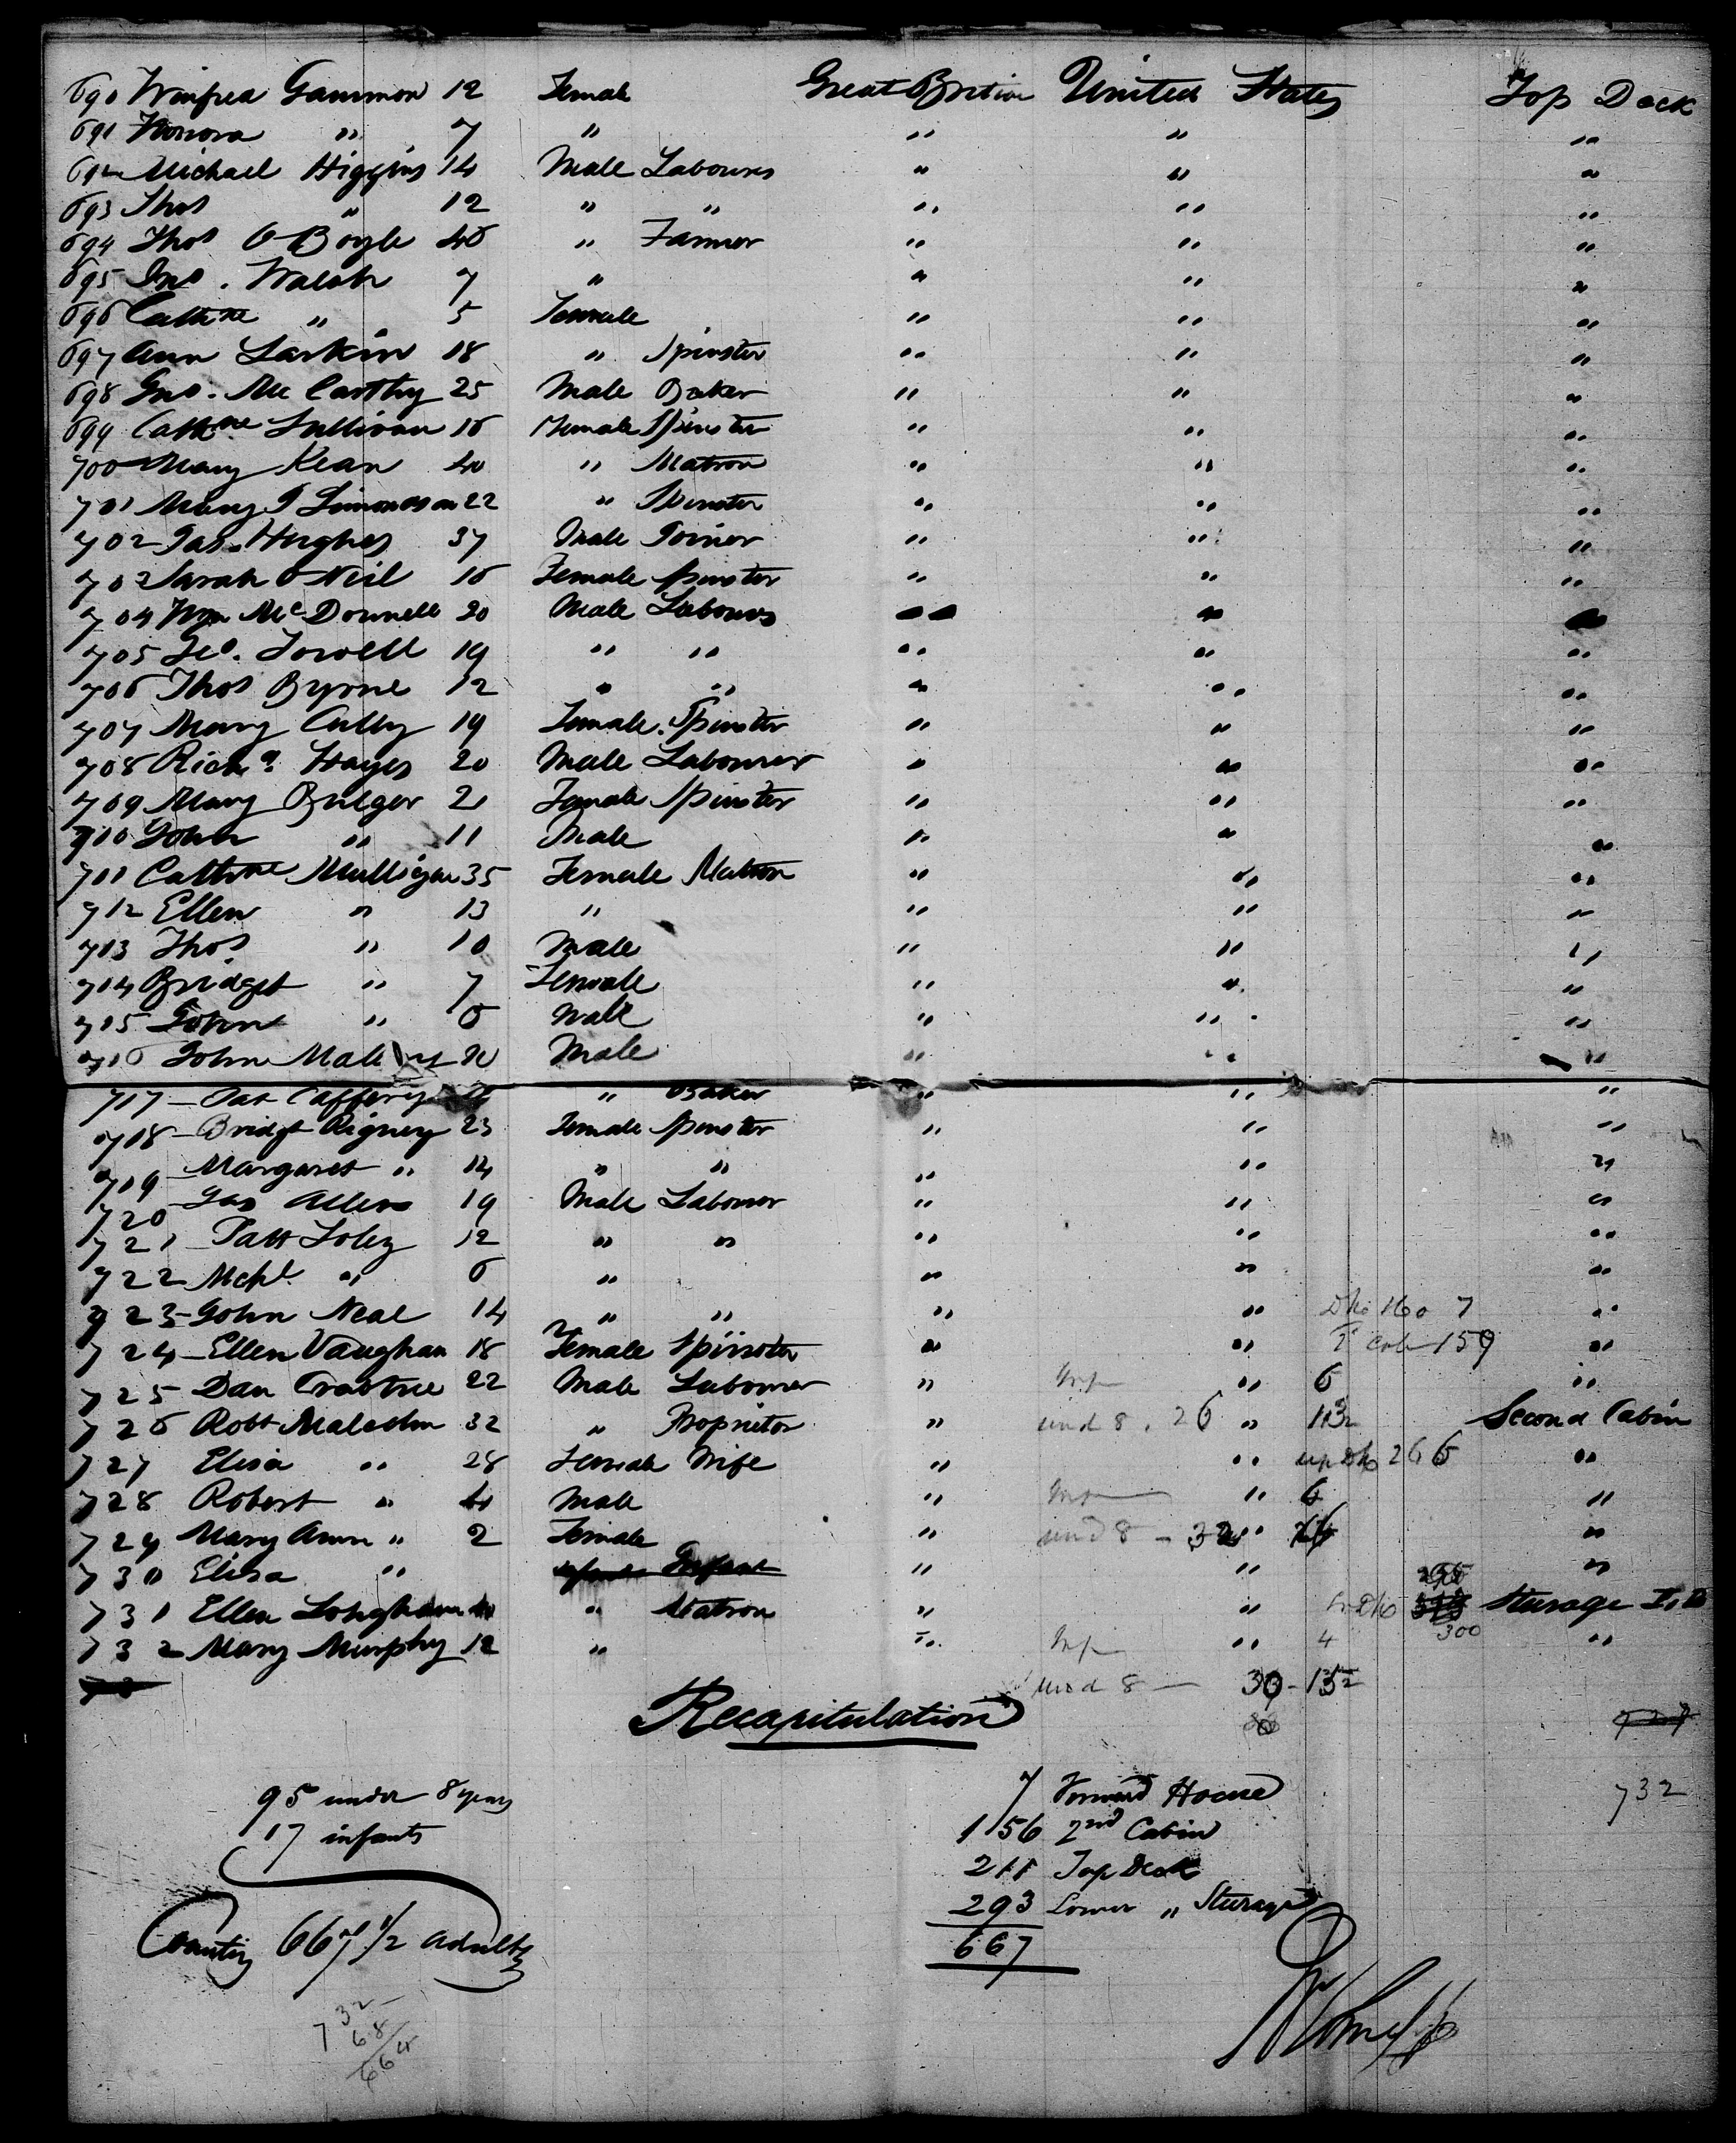 690 Winifred Gammon 12 Female Great Britian United States Top Deck
691 Honora " 7 " " " "
692 Michael Higgins 14 Male Labourer " " "
693 Thos " 12 " " " " "
694 Thos O Boyle 46 " Farmer " " "
695 Jno. Walsh 7 " " " "
696 Cathne " 5 Female " " "
697 Ann Larkin 18 " Spinster " " "
698 Jno. McCarthy 25 Male Baker " " "
699 Cathne Sullivan 16 Female Spinster " " "
700 Mary Kean 40 " Matron " " "
701 Mary J Simondson 22 " Spinster " " "
702 Jas. Hughes 37 Male Joiner " " "
703 Sarah O Neil 16 Female Spinster " " "
704 Wm McDonnell 20 Male Labourer " " "
705 Geo. Towell 19 " " " " "
706 Thos Byrne 12 " " " " "
707 Mary Cully 19 Female Spinster " " "
708 Richd. Hayes 20 Male Labourer " " "
709 Mary Bulger 21 Female Spinster " " "
710 John " 11 Male " " "
711 Cathne Mulligan 35 Female Matron " " "
712 Ellen " 13 " " " "
713 Thos " 10 Male " " "
714 Bridget " 7 Female " " "
715 John " 6 Male " " "
716 John 20 Male " " "
717 Pat Caffery " Baker " " "
718 Bridgt Rigney 23 Female Spinster " " "
719 Margaret " 14 " " " " "
720 Jas Allen 19 Male Labourer " " "
721 Patt Foley 12 " " " " "
722 Mchl " 6 " " " "
723 John Neal 14 " " " " 160 7 "
724 Ellen Vaughan 18 Female Spinster " " 159 "
725 Dan Crabtree 22 Male Labourer " Inf " 6 "
726 Robt Malcolm 32 " Proprietor " und 8. 26 " 132 Second Cabin
727 Elisa " 28 Female Wife " " 266 "
728 Robert " 4 Male " Inf " 6 "
729 Mary Ann " 2 Female " und 8 - "
730 Elisa " Infant " " "
731 Ellen 40 " Matron " " Steerage
732 Mary Murphy 12 " " Inf " 4 300 "
und 8 - 30 - 132
Recapitulation
95 under 8 years
17 infants
7 Forward House
156 2nd Cabin
732
211 Top Deck
293 Lower " Steerage
Counting 667 1/2 adults
667
732
68
664